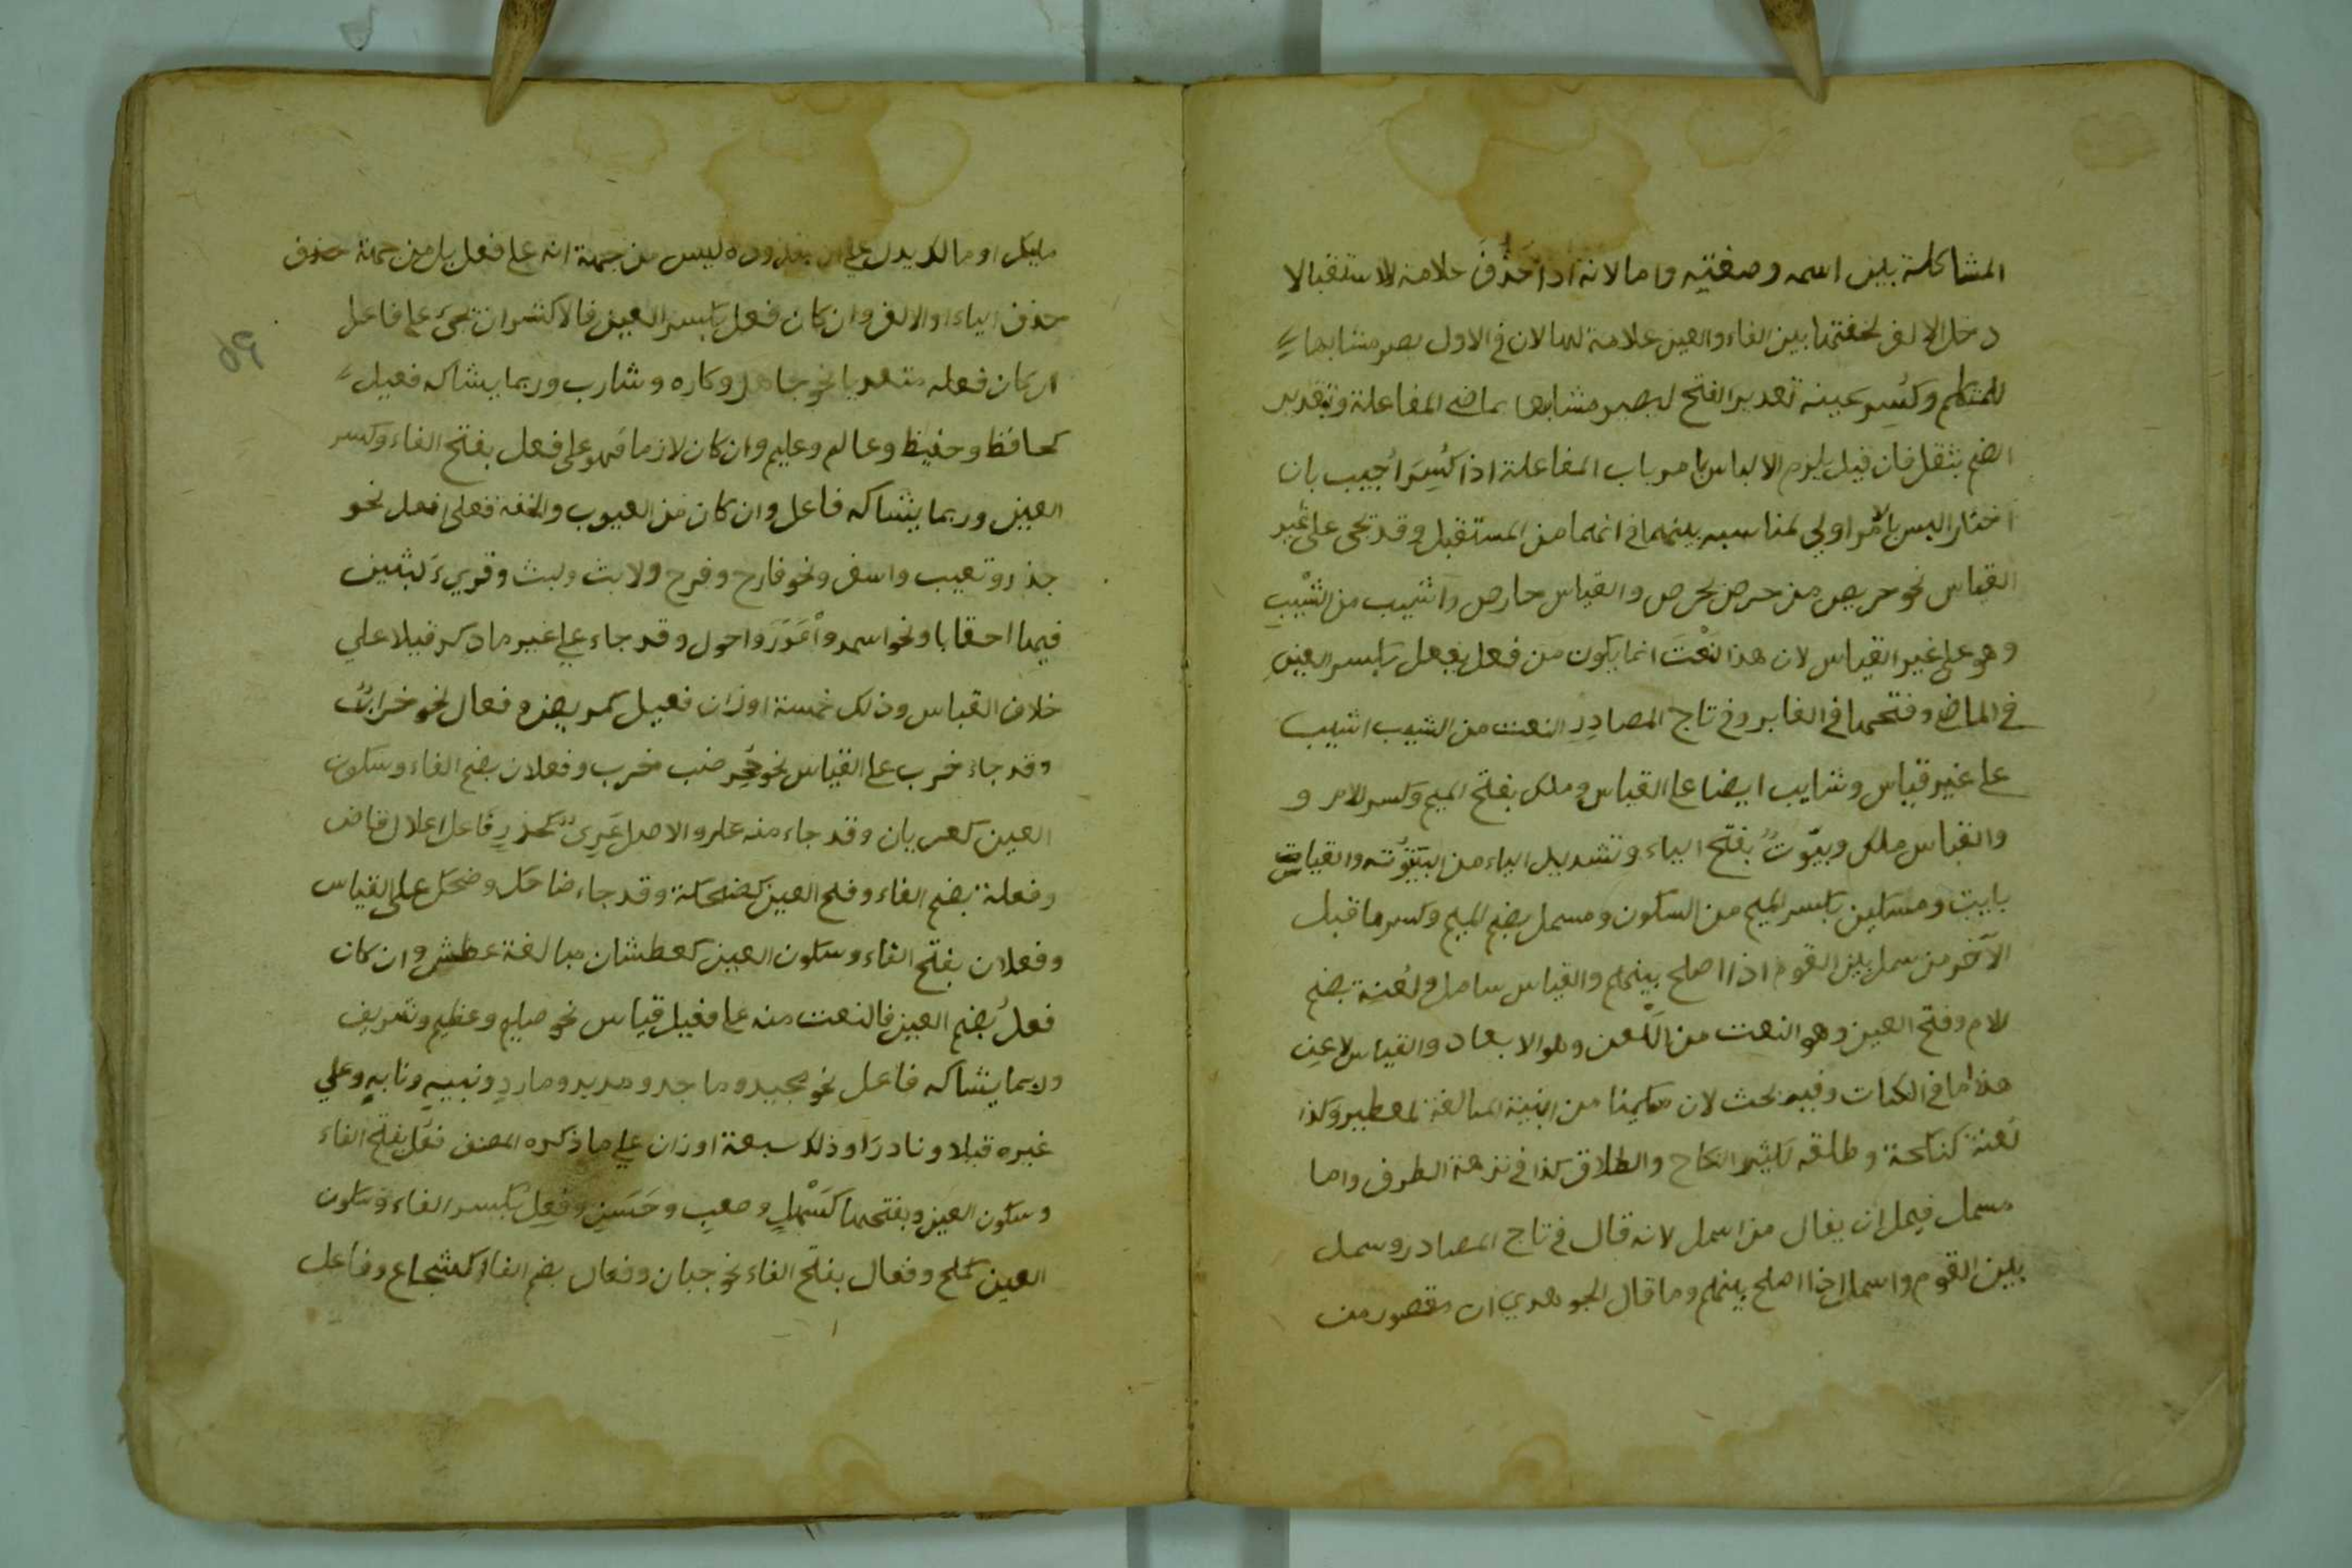 المشاكلة بين اسمه وصفتيه واما لانه اذا حذف علامة للاستقبالا
دخل الالف لخفتها بين الفاء والعين علامة لهما لان في الاول يصير مشابها
للمتكلم وكسر عينه تعدير الفتح ليصير مشابها بماضي المفاعلة وتقدير
الضم يثقل فان قيل يلزم الالباس بامر باب المفاعلة اذا كسر اجيب بان
اختار البس بالامر اولي لمناسبه بينهما في انهما من المستقبل وقد تجي على غير
القياس نحو حريص من حرص يحرص والقياس حارص واشيب من الشيب
وهو على غير القياس لان هذا النعت انما يكون من فعل يفعل بكسر العين
في الماضي وفتحها في الغابر وفي تاج المصادر النعت من الشيب اشيب
على غير قياس وشايب ايضا على القياس وملك بفتح الميم وكسر للام و
والقياس ملك وبيّوت بفتح الباء وتشديد الياء من البيتوتة والقياس
بايت ومسكين بكسر الميم من السكون ومسمل بضم الميم وكسر ما قبل
الآخر من سمل بين القوم اذا اصلح بينهم والقياس سامل ولعنة بضم
للام وفتح العين وهو النعت من اللعن وهو الابعاد والقياس لاعن
هذا ما في الكتاب وفيه بحث لان مسكينا من ابنية المبالغة لمعطير وكذا
لعنة كنكحة وطلقه لكثير النكاح والطلاق كذا في نزهة الطرف واما
مسمل فيمل ان يقال من اسمل لانه قال في تاج المصادر وسمل
بين القوم واسمل اذا اصلح بينهم وما قال الجوهري ان مقصور من
مليك او مالك يدل على ان ليس من جهة انه على فعل بل من جهة حذف
حذف الياء او الالف وان كان فعل بكسر العين فالاكثر ان تجيء على فاعل
ان كان فعله متعديا نحو جاهل وكاره وشارب وربما يشاكه فعيل
كحافظ وحفيظ وعالم وعليم وان كان لازما فهو على فعل بفتح الفاء وكسر
العين وربما يشاكه فاعل وان كان من العيوب والخفة فعلى افعل نحو
حذر وتعيب واسف ونحو فارح وفرح ولابث ولبث وقريء لبثين
فيها احقابا ونحو اسمر واعور واحول وقد جاء على غير ما ذكر قبلا على
خلاف القياس وذلك خمسة اوزان فعيل كمريض وفعال نحو خراب
وقد جاء خرب على القياس نحو جحر ضب خرب وفعلان بضم الفاء وسكون
العين كعريان وقد جاء منه عار والاصل عري كحذر فاعل اعلال قاض
وفعلة بضم الفاء وفتح العين كضحكة وقد جاء ضاحك وضحك على القياس
وفعلان بفتح الفاء وسكون العين كعطشان مبالغة عطش وان كان
فعل بضم العين فالنعت منه على فعيل قياس نحو صليم وعظيم وشريف
وربما يشاكه فاعل نحو مجيد وماجد ومريد ومارد ونبيه ونابه وعلي
غيره قبلا ونادرا وذلك سبعة اوزان علي ما ذكره المصنف فعل بفتح الفاء
وسكون العين وبفتحها كسهل وصعب وحسن وفعل بكسر الفاء وسكون
العين كملح وفعال بفتح الفاء نحو جبان وفعال بضم الفاء كشجاع وفاعل